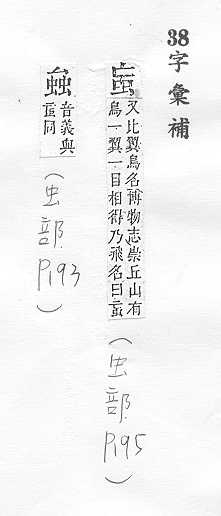 38字彙補
䖟
又比翼鳥名博物志崇丘山有
鳥一翼一目相得乃飛名曰䖟
(虫部 P195)
音義與
䖟同
(虫部 P193)